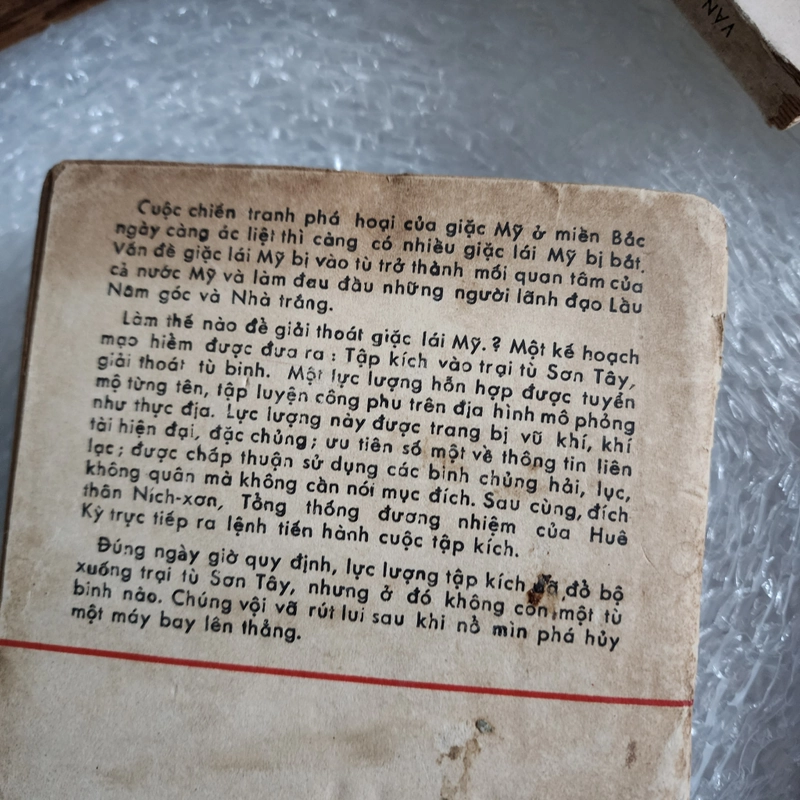 VĂN
Cuộc chiến tranh phá hoại của giặc Mỹ ở miền Bắc
ngày càng ác liệt thì càng có nhiều giặc lái Mỹ bị bắt.
Vấn đề giặc lái Mỹ bị vào tù trở thành mối quan tâm của
cả nước Mỹ và làm đau đầu những người lãnh đạo Lầu
Năm góc và Nhà trắng.
Làm thế nào để giải thoát giặc lái Mỹ.? Một kế hoạch
mạo hiểm được đưa ra : Tập kích vào trại tù Sơn Tây,
giải thoát tù binh. Một lực lượng hỗn hợp được tuyển
mộ từng tên, tập luyện công phu trên địa hình mô phỏng
như thực địa. Lực lượng này được trang bị vũ khí, khí
tài hiện đại, đặc chủng; ưu tiên số một về thông tin liên
lạc; được chấp thuận sử dụng các binh chủng hải, lục,
không quân mà không cần nói mục đích. Sau cùng, đích
thân Ních-xơn, Tổng thống đương nhiệm của Huê
Kỳ trực tiếp ra lệnh tiến hành cuộc tập kích.
Đúng ngày giờ quy định, lực lượng tập kích đã đổ bộ
xuống trại tù Sơn Tây, nhưng ở đó không còn một tù
binh nào. Chúng vội vã rút lui sau khi nổ mìn phá hủy
một máy bay lên thẳng.